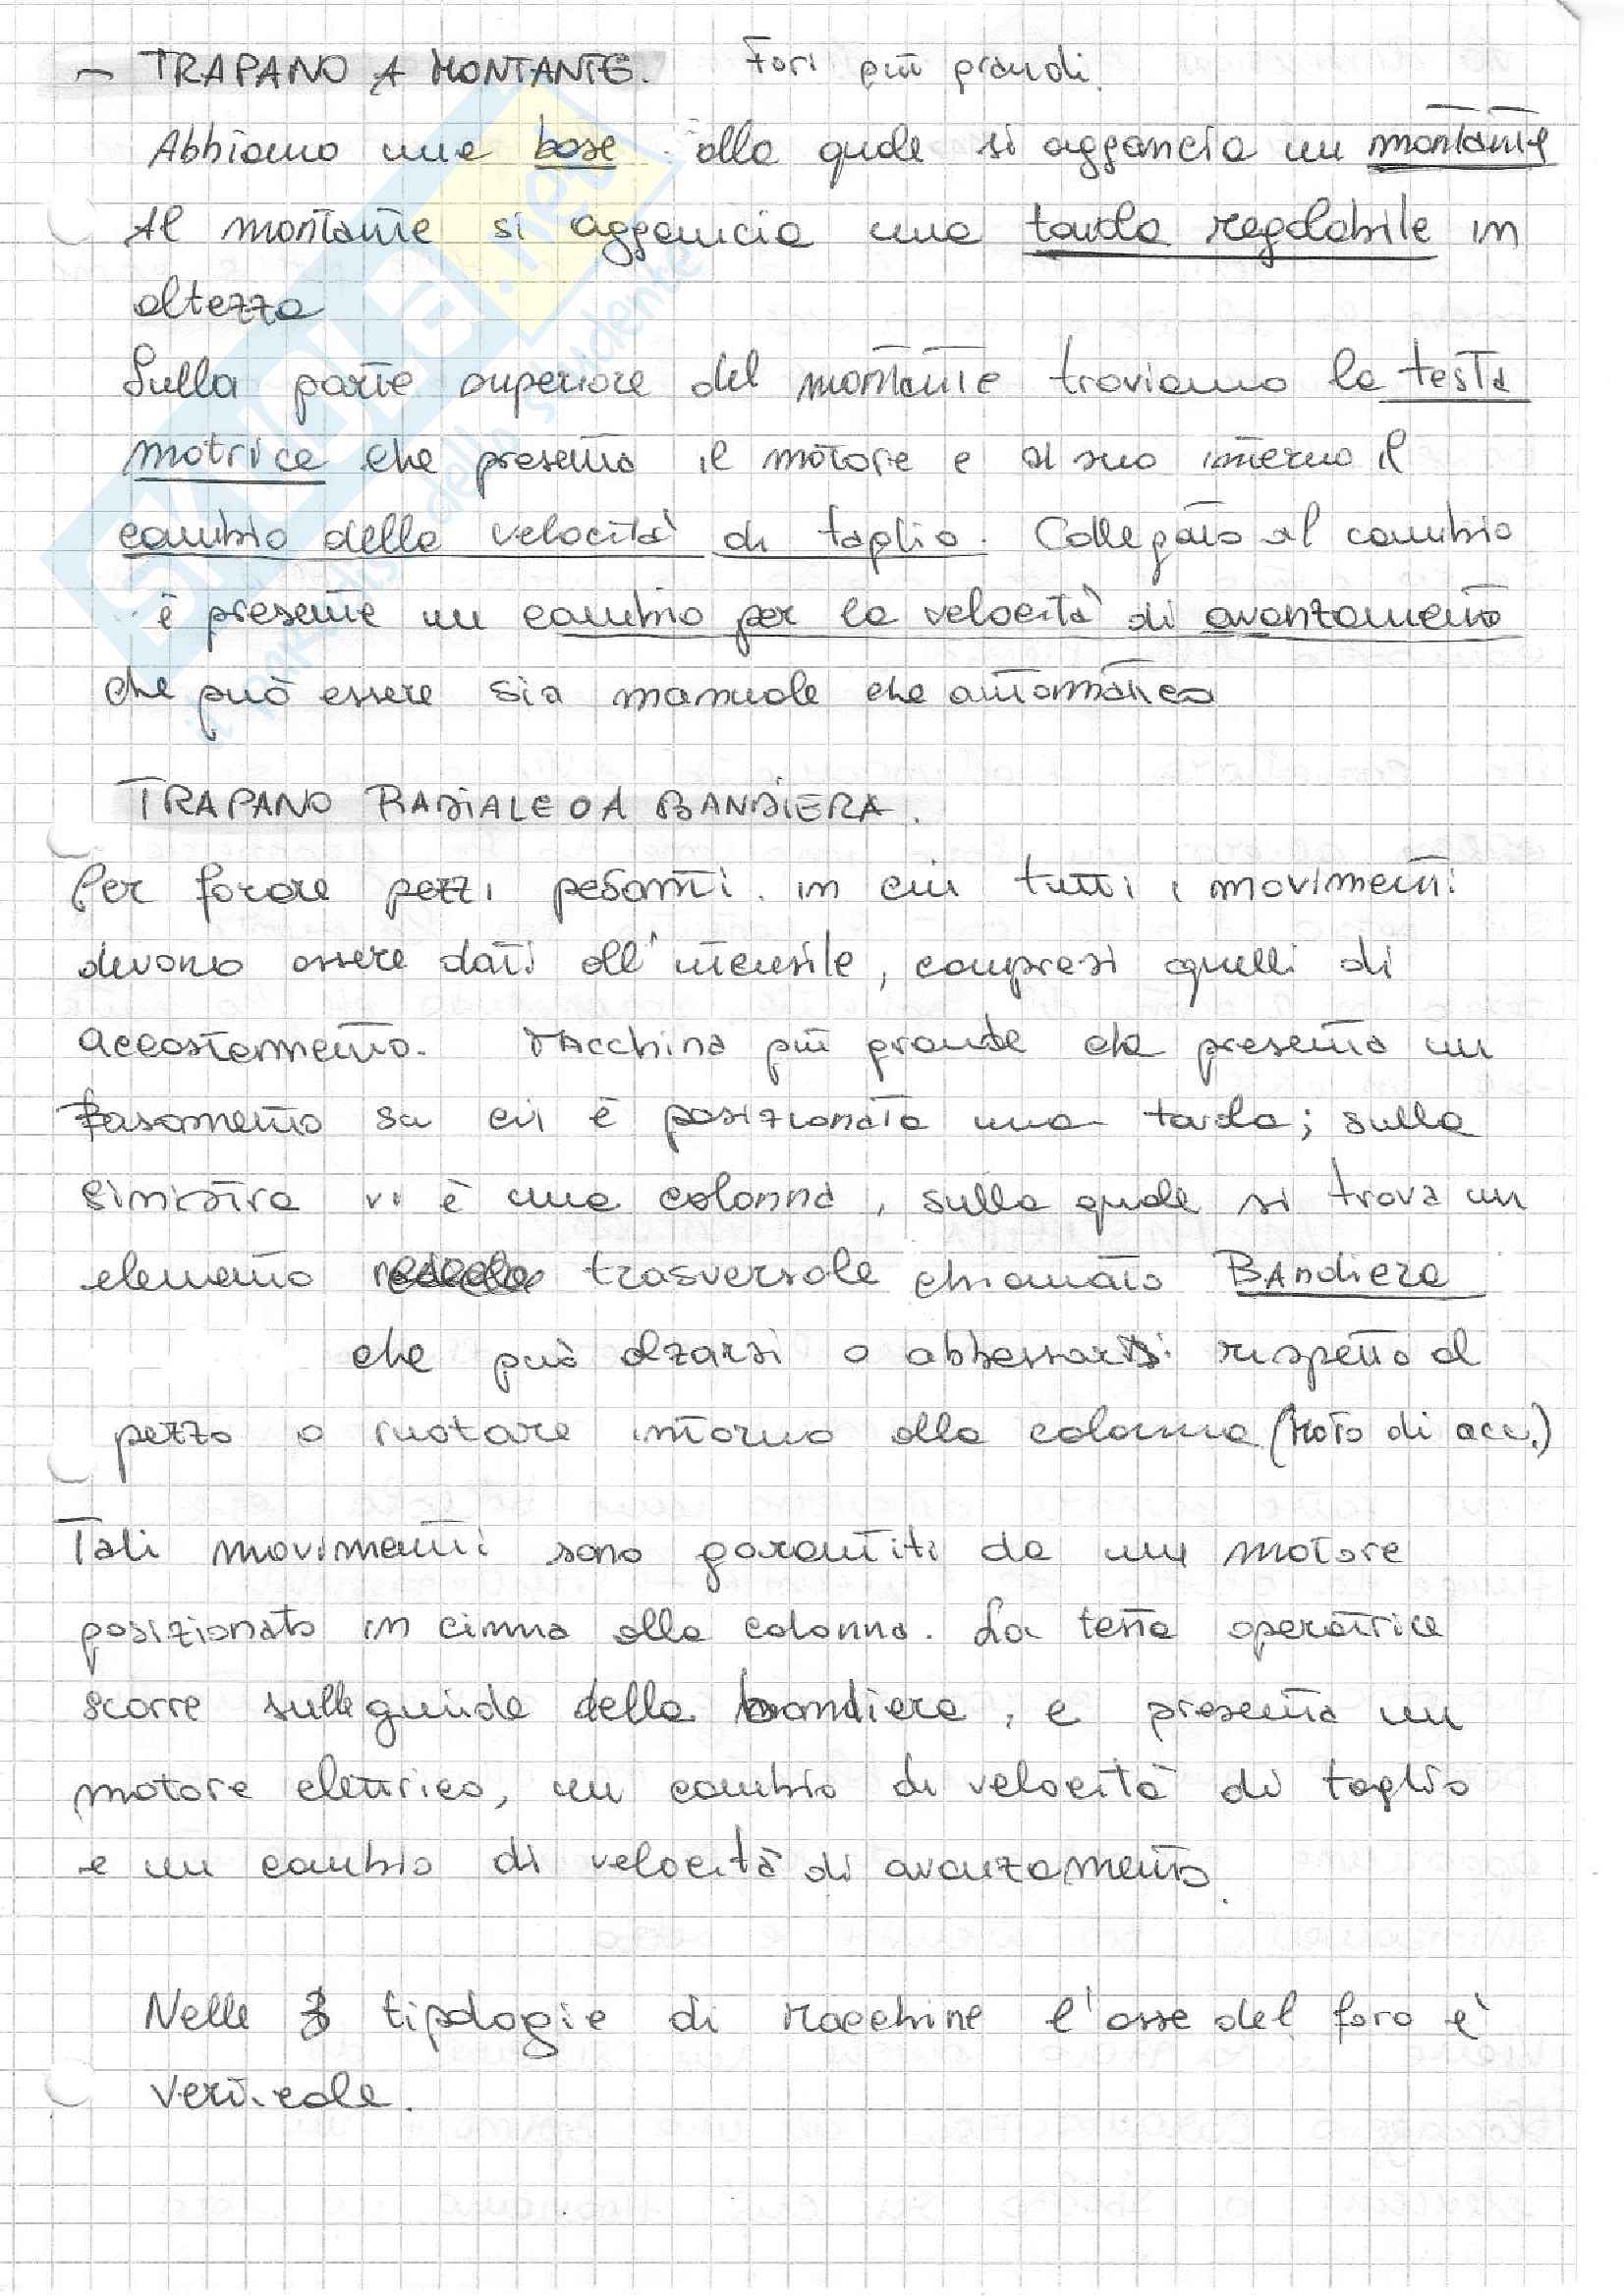 - TRAPANO A MONTANTE. Fori più grandi.
Abbiamo una base alla quale si aggancia un montante
Al montante si aggancia una tavola regolabile in
altezza
Sulla parte superiore del montante troviamo la testa
motrice che presenta il motore e al suo interno il
cambio della velocità di taglio. Collegato al cambio
è presente un cambio per la velocità di avanzamento
che può essere sia manuale che automatico
TRAPANO RADIALE O A BANDIERA.
Per forare pezzi pesanti. in cui tutti i movimenti
devono essere dati all'utensile, compresi quelli di
accostamento. Macchina più grande che presenta un
Basamento su cui è posizionata una tavola; sulla
sinistra vi è una colonna, sulla quale si trova un
elemento trasversale chiamato Bandiera
che può alzarsi o abbassarsi rispetto al
pezzo o ruotare intorno alla colonna (Moto di acc.)
Tali movimenti sono garantiti da un motore
posizionato in cima alla colonna. La testa operatrice
scorre sulle guide della bandiera, e presenta un
motore elettrico, un cambio di velocità di taglio
e un cambio di velocità di avanzamento.
Nelle 3 tipologie di Macchine l'asse del foro è
verticale.
SKUOLA.net
il paradiso dello studente